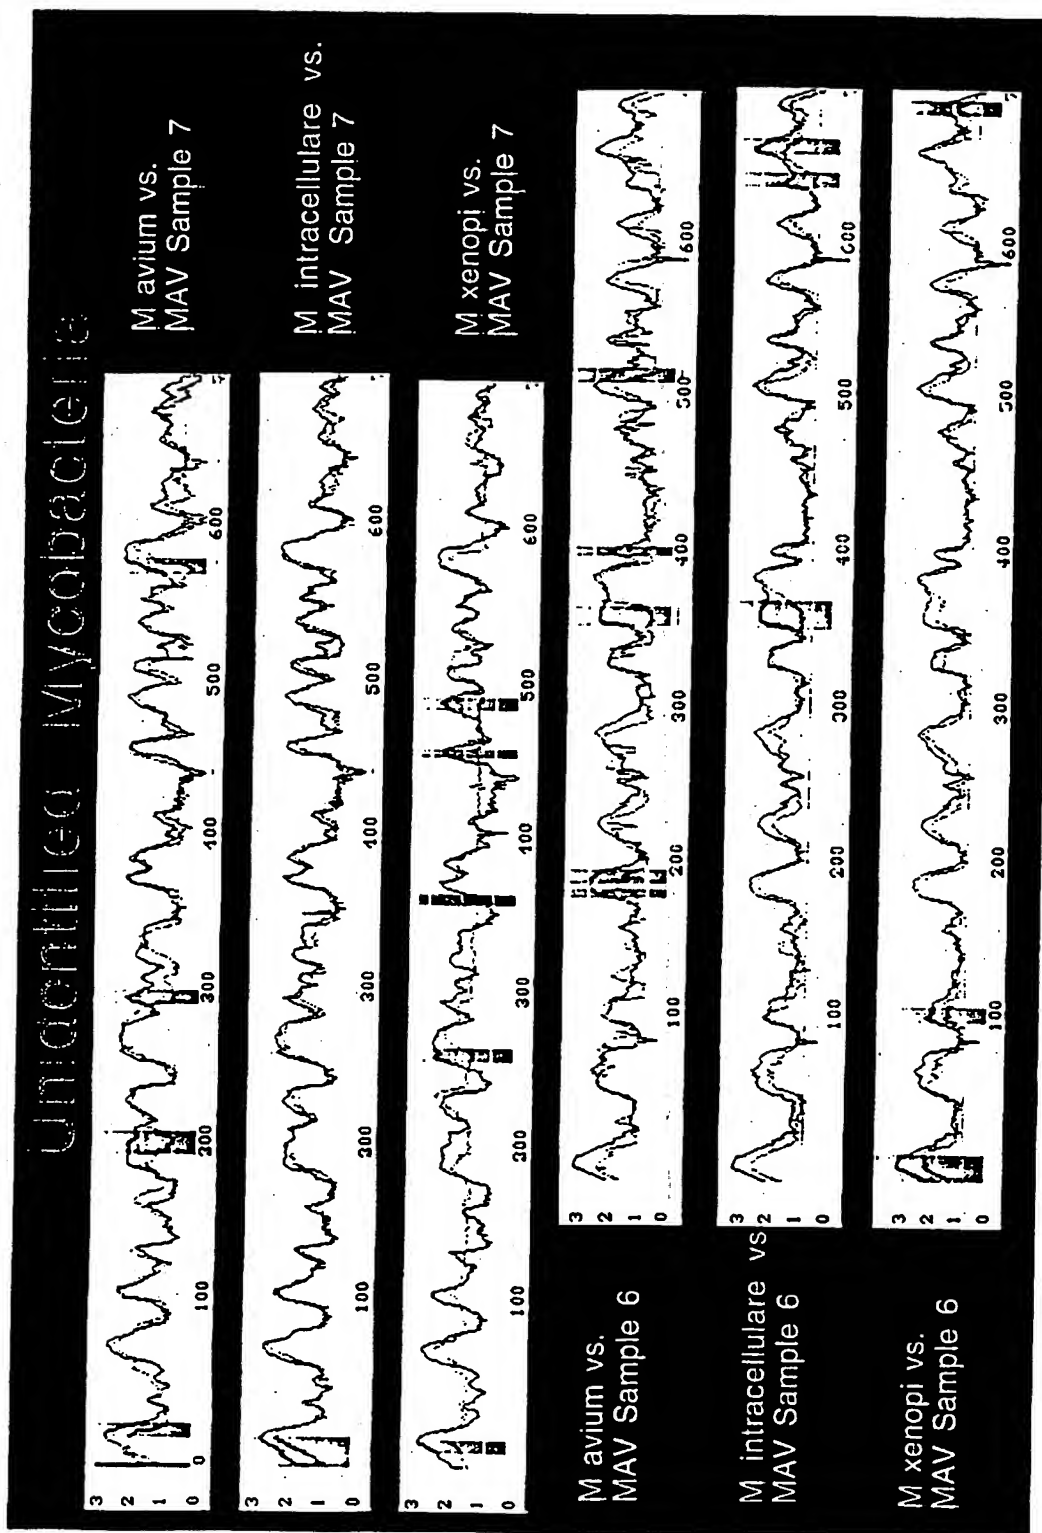 Unidentified Mycobacteria
3
2
1
0
0
100
200
300
400
500
600
M avium vs.
MAV Sample 7
3
2
1
0
100
200
300
400
500
600
M intracellulare vs.
MAV Sample 7
3
2
1
0
100
200
300
400
500
600
M xenopi vs.
MAV Sample 7
M avium vs.
MAV Sample 6
3
2
1
0
100
200
300
400
500
600
M intracellulare vs.
MAV Sample 6
3
2
1
0
100
200
300
400
500
600
M xenopi vs.
MAV Sample 6
3
2
1
0
100
200
300
400
500
600